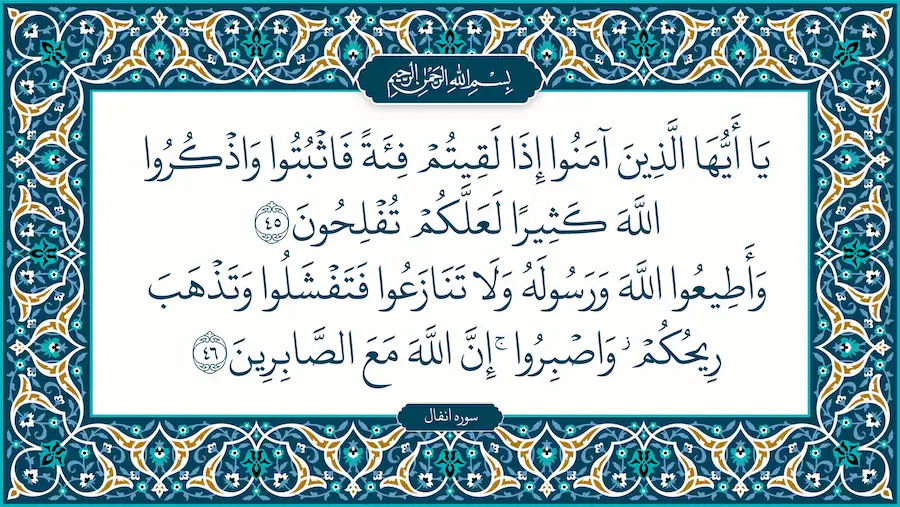 بِسْمِ اللهِ الرَّحْمٰنِ الرَّحِيمِ
يَا أَيُّهَا الَّذِينَ آمَنُوا إِذَا لَقِيتُمْ فِئَةً فَاثْبُتُوا وَاذْكُرُوا
اللَّهَ كَثِيرًا لَعَلَّكُمْ تُفْلِحُونَ ﴿٤٥﴾
وَأَطِيعُوا اللَّهَ وَرَسُولَهُ وَلَا تَنَازَعُوا فَتَفْشَلُوا وَتَذْهَبَ
رِيحُكُمْ ز وَاصْبِرُوا ۚ إِنَّ اللَّهَ مَعَ الصَّابِرِينَ ﴿٤٦﴾
سوره انفال